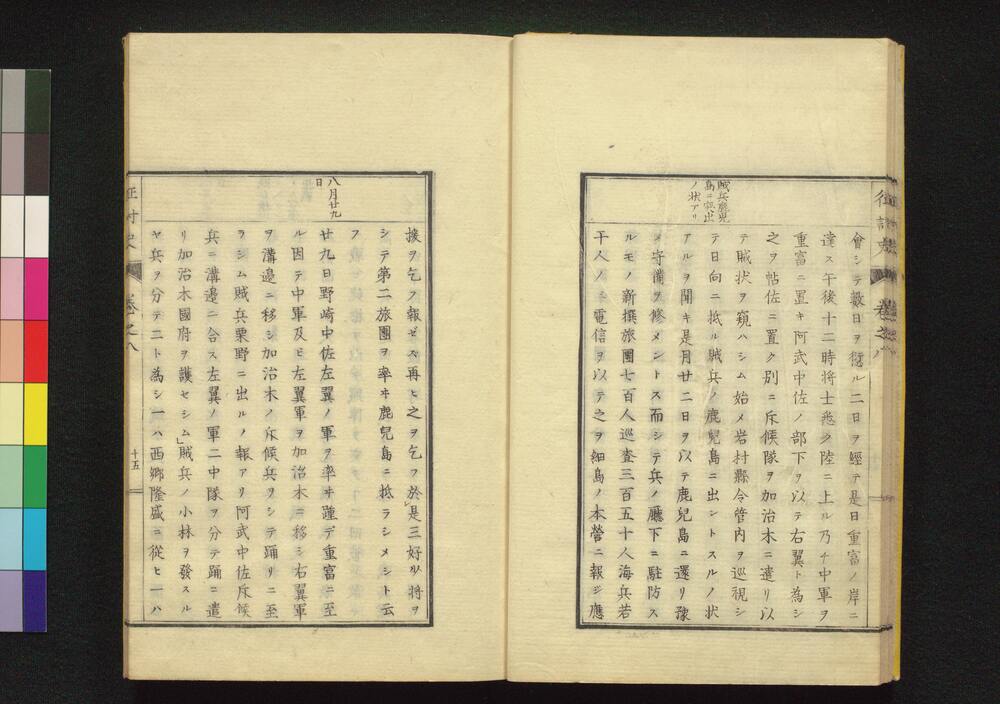 征討史 卷之八
賊兵鹿児
島ニ突出
ノ状アリ
會シテ數日ヲ愆ル二日ヲ經テ是日重富ノ岸ニ
達ス午後十二時將士悉ク陸ニ上ル乃チ中軍ヲ
重富ニ置キ阿武中佐ノ部下ヲ以テ右翼ト為シ
之ヲ帖佐ニ置ク別ニ斥候隊ヲ加治木ニ遣リ以
テ賊状ヲ窺ハシム始メ岩村縣令管内ヲ巡視シ
テ日向ニ抵ル賊兵ノ鹿兒島ニ出ントスルノ状
アルヲ聞キ是月廿二日ヲ以テ鹿兒島ニ還リ豫
メ守備ヲ修メントス而シテ兵ノ廳下ニ駐防ス
ルモノ新撰旅團七百人巡查三百五十人海兵若
干人ノミ電信ヲ以テ之ヲ細島ノ本營ニ報シ應
援ヲ乞フ報ゼス再ヒ之ヲ乞フ於是三好少將ヲ
シテ第二旅團ヲ率ヰ鹿兒島ニ抵ラシメシト云
フ
八月廿九
日
廿九日野崎中佐左翼ノ軍ヲ率ヰ踵デ重富ニ至
ル因テ中軍及ヒ左翼軍ヲ加治木ニ移シ右翼軍
ヲ溝邊ニ移シ加治木ノ斥候兵ヲシテ踊リニ至
ラシム賊兵栗野ニ出ルノ報アリ阿武中佐斥候
兵ニ溝邊ニ合ス左翼ノ軍二中隊ヲ分テ踊ニ遣
リ加治木國府ヲ護セシム」賊兵ノ小林ヲ發スル
ヤ兵ヲ分テ二ト為シ一ハ西郷隆盛ニ從ヒ一ハ
征討史 卷之八 十五